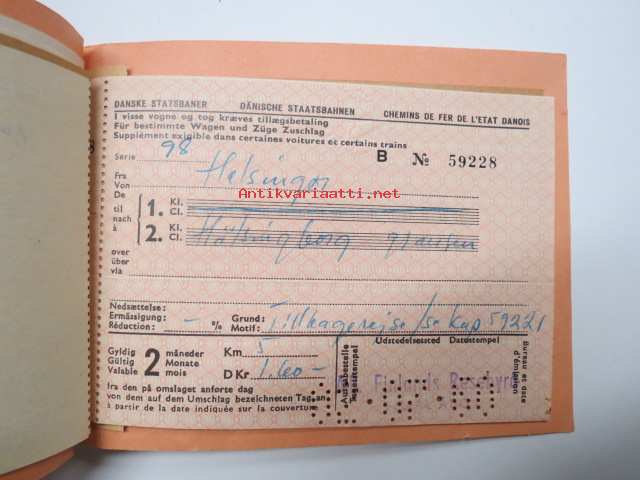 DANSKE STATSBANER DÄNISCHE STAATSBAHNEN CHEMINS DE FER DE L'ETAT DANOIS
I visse vogne og tog kræves tillægsbetaling
Für bestimmte Wagen und Züge Zuschlag
Supplément exigible dans certaines voitures et certains trains
Serie 98 B № 59228
Fra
Von
De
Helsingør
Antikvariaatti.net
til
nach
à
1. Kl. Cl.
2. Kl. Cl.
Hälsingborg grænsen
over
über
via
Nedsættelse:
Ermässigung:
Réduction:
- %
Grund:
Motif:
Tillbagerejse/se kup 59221
Gyldig
Gültig
Valable
2
måneder
Monate
mois
Km 5
D Kr 1.60-
fra den på omslaget anførte dag
von dem auf dem Umschlag bezeichneten Tag an
à partir de la date indiquée sur la couverture
Ausgabestelle
Tagesstempel
Udstedelsessted Datostempel
Bureau et date
d'émission
Finlands